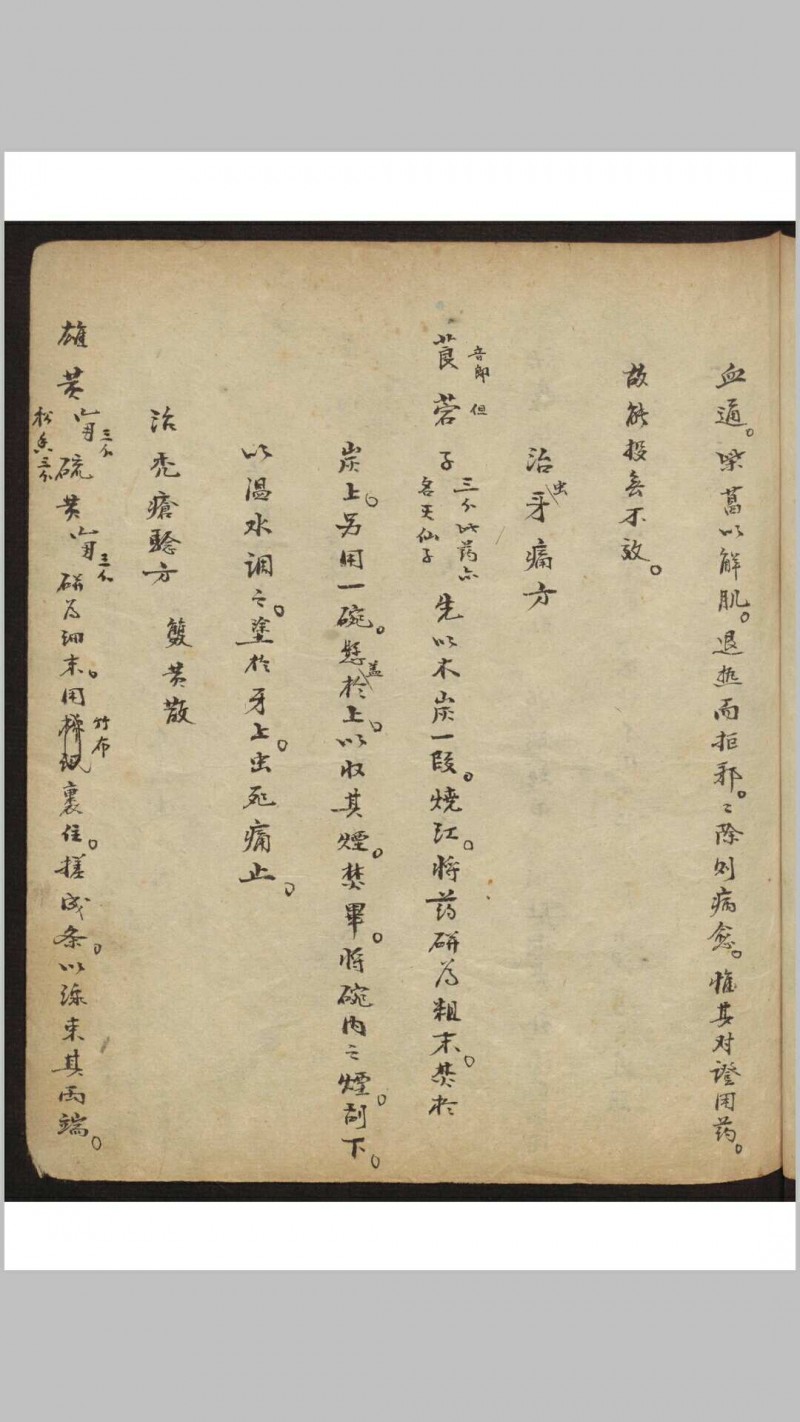 血通。柴葛以解肌。退热而拒邪。〻除则病愈。惟其对證用药。
故能投無不效。
治虫牙痛方
莨菪子 音郎 但 三分此药亦名天仙子 先以木炭一段。燒红。将药研為粗末。焚於
炭上。另用一碗。懸盖於上。以收其煙。焚畢。将碗内之煙。刮下。
以温水调之。塗於牙上。虫死痛止。
治秃瘡騐方 雙黄散
雄黄 三分 松香三分 硫黄 三分 研為细末。用竹布裹住。搓成条。以線束其两端。